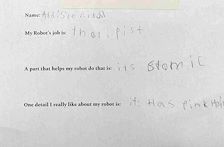 Name:
My Robot's job is: tharipist
A part that helps my robot do that is: its stomic
One detail I really like about my robot is: it Has pink